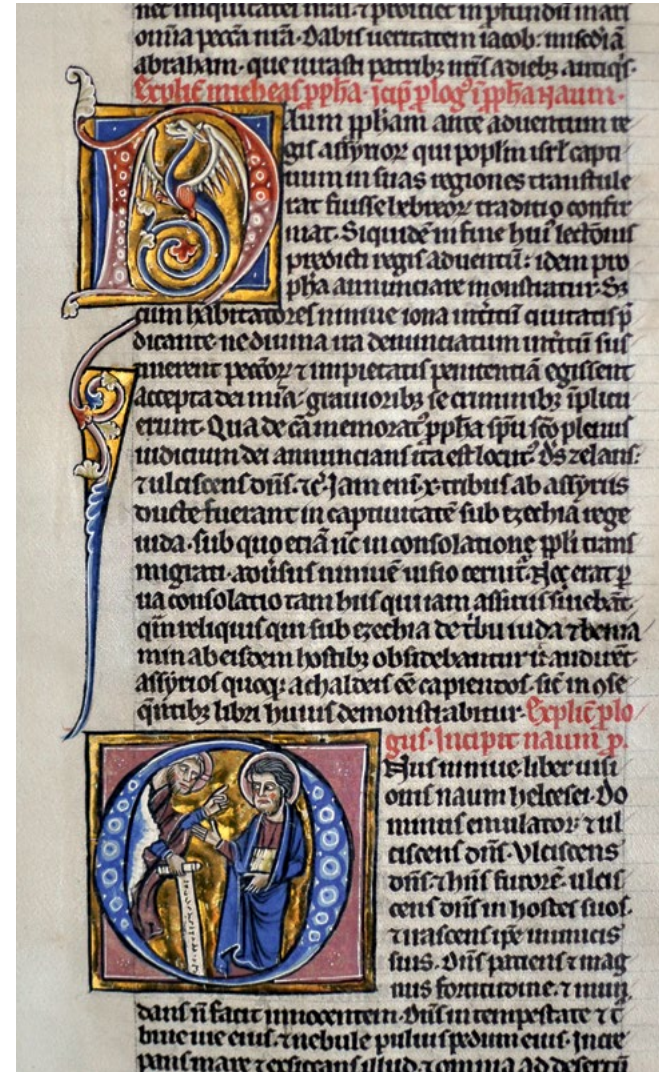 net iniquitates nr̄as. ⁊ proiciet in ꝓfundū maris
om̄ia peccā nr̄a. Dabis ueritatem iacob: misc̄diā
abraham. que iurasti patribꝫ nr̄is a diebꝫ antiqͥs.
Explic̄ micheas ꝓph̄a. Īcip̄ ꝓlogꝰ ī ꝓph̄a naum.
Naum ꝓph̄am ante aduentum re
gis assyrioꝝ qui popl̄m isrl̄ capti
uum in suas regiones transtule
rat fuisse hebreoꝝ traditio confir
mat. Siquidē in fine huiꝰ lectōnis
predicti regis aduentū: idem pro
ph̄a annunciare monstratur. Sꝫ
cum habitatores niniue iona int̄itū ciuitatis p̄
dicante. ne diuina ira denunciatum int̄itū sus
tinerent peccōꝝ ⁊ impietatis penitentiā egissent
accepta dei mīa. grauioribꝫ se criminibꝫ īplicu
erunt. Qua de cā memoratꝰ ꝓph̄a sp̄u sc̄o plenus
iudicium dei annuncians ita est locutꝰ. Ds̄ zelans:
⁊ ulciscens dn̄s. ⁊c̄. Jam eni ̄.x. tribus ab assyriis
ducte fuerant in captiuitatē sub ezechia rege
iuda. sub quo etiā nc̄ in consolationē ppl̄i trans
migrati. aduīsus niniuē uisio cernit̄. Nec erat ꝑ
ua consolatio tam hiis qui iam assiriis ſuiebāt.
qm̄ reliquis qui sub ezechia de tͥbu iuda ⁊ benia
min ab eisdem hostibꝫ obsidebantur ut audirēt.
assyrios quoqꝫ a chaldeis eē capiendos. sic̄ in ꝯse
qn̄tibꝫ libri huius demonstrabitur. Explic̄ plo
gus. Incipit naum ꝓ.
Onus niniue. liber uisi
onis naum helcesei. Do
minus emulator ⁊ ul
ciscens dn̄s. Ulciscens
dn̄s. ⁊ hn̄s furorē. ulcis
cens dn̄s in hostes suos.
⁊ irascens ip̄e inimicis
suis. Dn̄s patiens ⁊ mag
nus fortitudine. ⁊ mun
dans n̄ faciet innocentem. Dn̄s in tempestate ⁊ t̄
bine uie eius. ⁊ nebule puluis pedum eius. Incre
pans mare ⁊ exsiccans illud. ⁊ omnia ad desertū